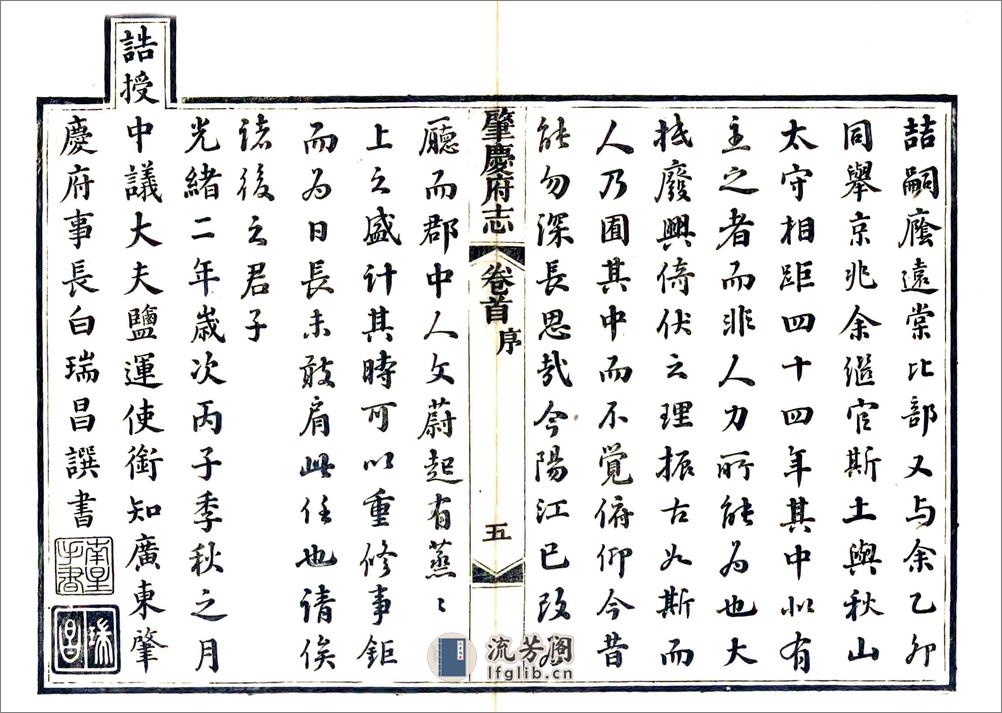 喆嗣廕遠棠比部又与余乙卯
同舉京兆余繼官斯土與秋山
太守相距四十四年其中似有
主之者而非人力所能为也大
抵廢興倚伏之理振古如斯而
人乃囿其中而不覺俯仰今昔
能勿深長思哉今陽江已改为
肇慶府志
卷首 序
五
廳而郡中人文蔚起有蒸〻
上之盛計其時可以重修事鉅
而为日長未敢肩此任也請俟
诸後之君子
光緒二年歲次丙子季秋之月
誥授
中議大夫鹽運使銜知廣東肇
慶府事長白瑞昌譔書
瑞昌
流芳阁
lfglib.cn